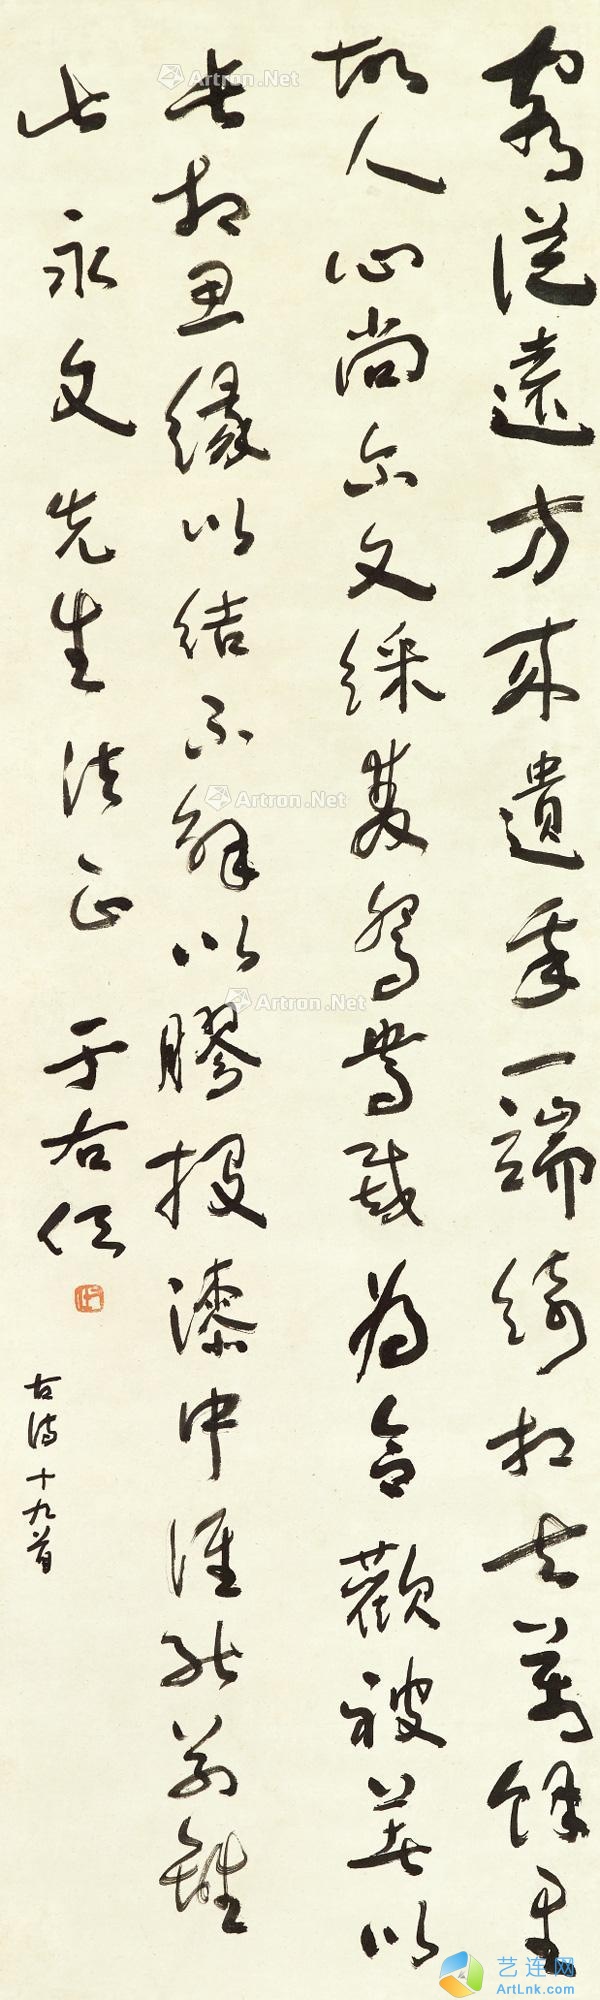 客從遠方來遺我一端綺相去萬餘里
故人心尚尔文綵雙鴛鴦裁為合歡被著以
長相思緣以結不解以膠投漆中誰能別離
此 永文先生法正 于右任
古詩十九首
Artron.Net
Artron.Net
Artron.Net
艺连网
ArtLnk.com